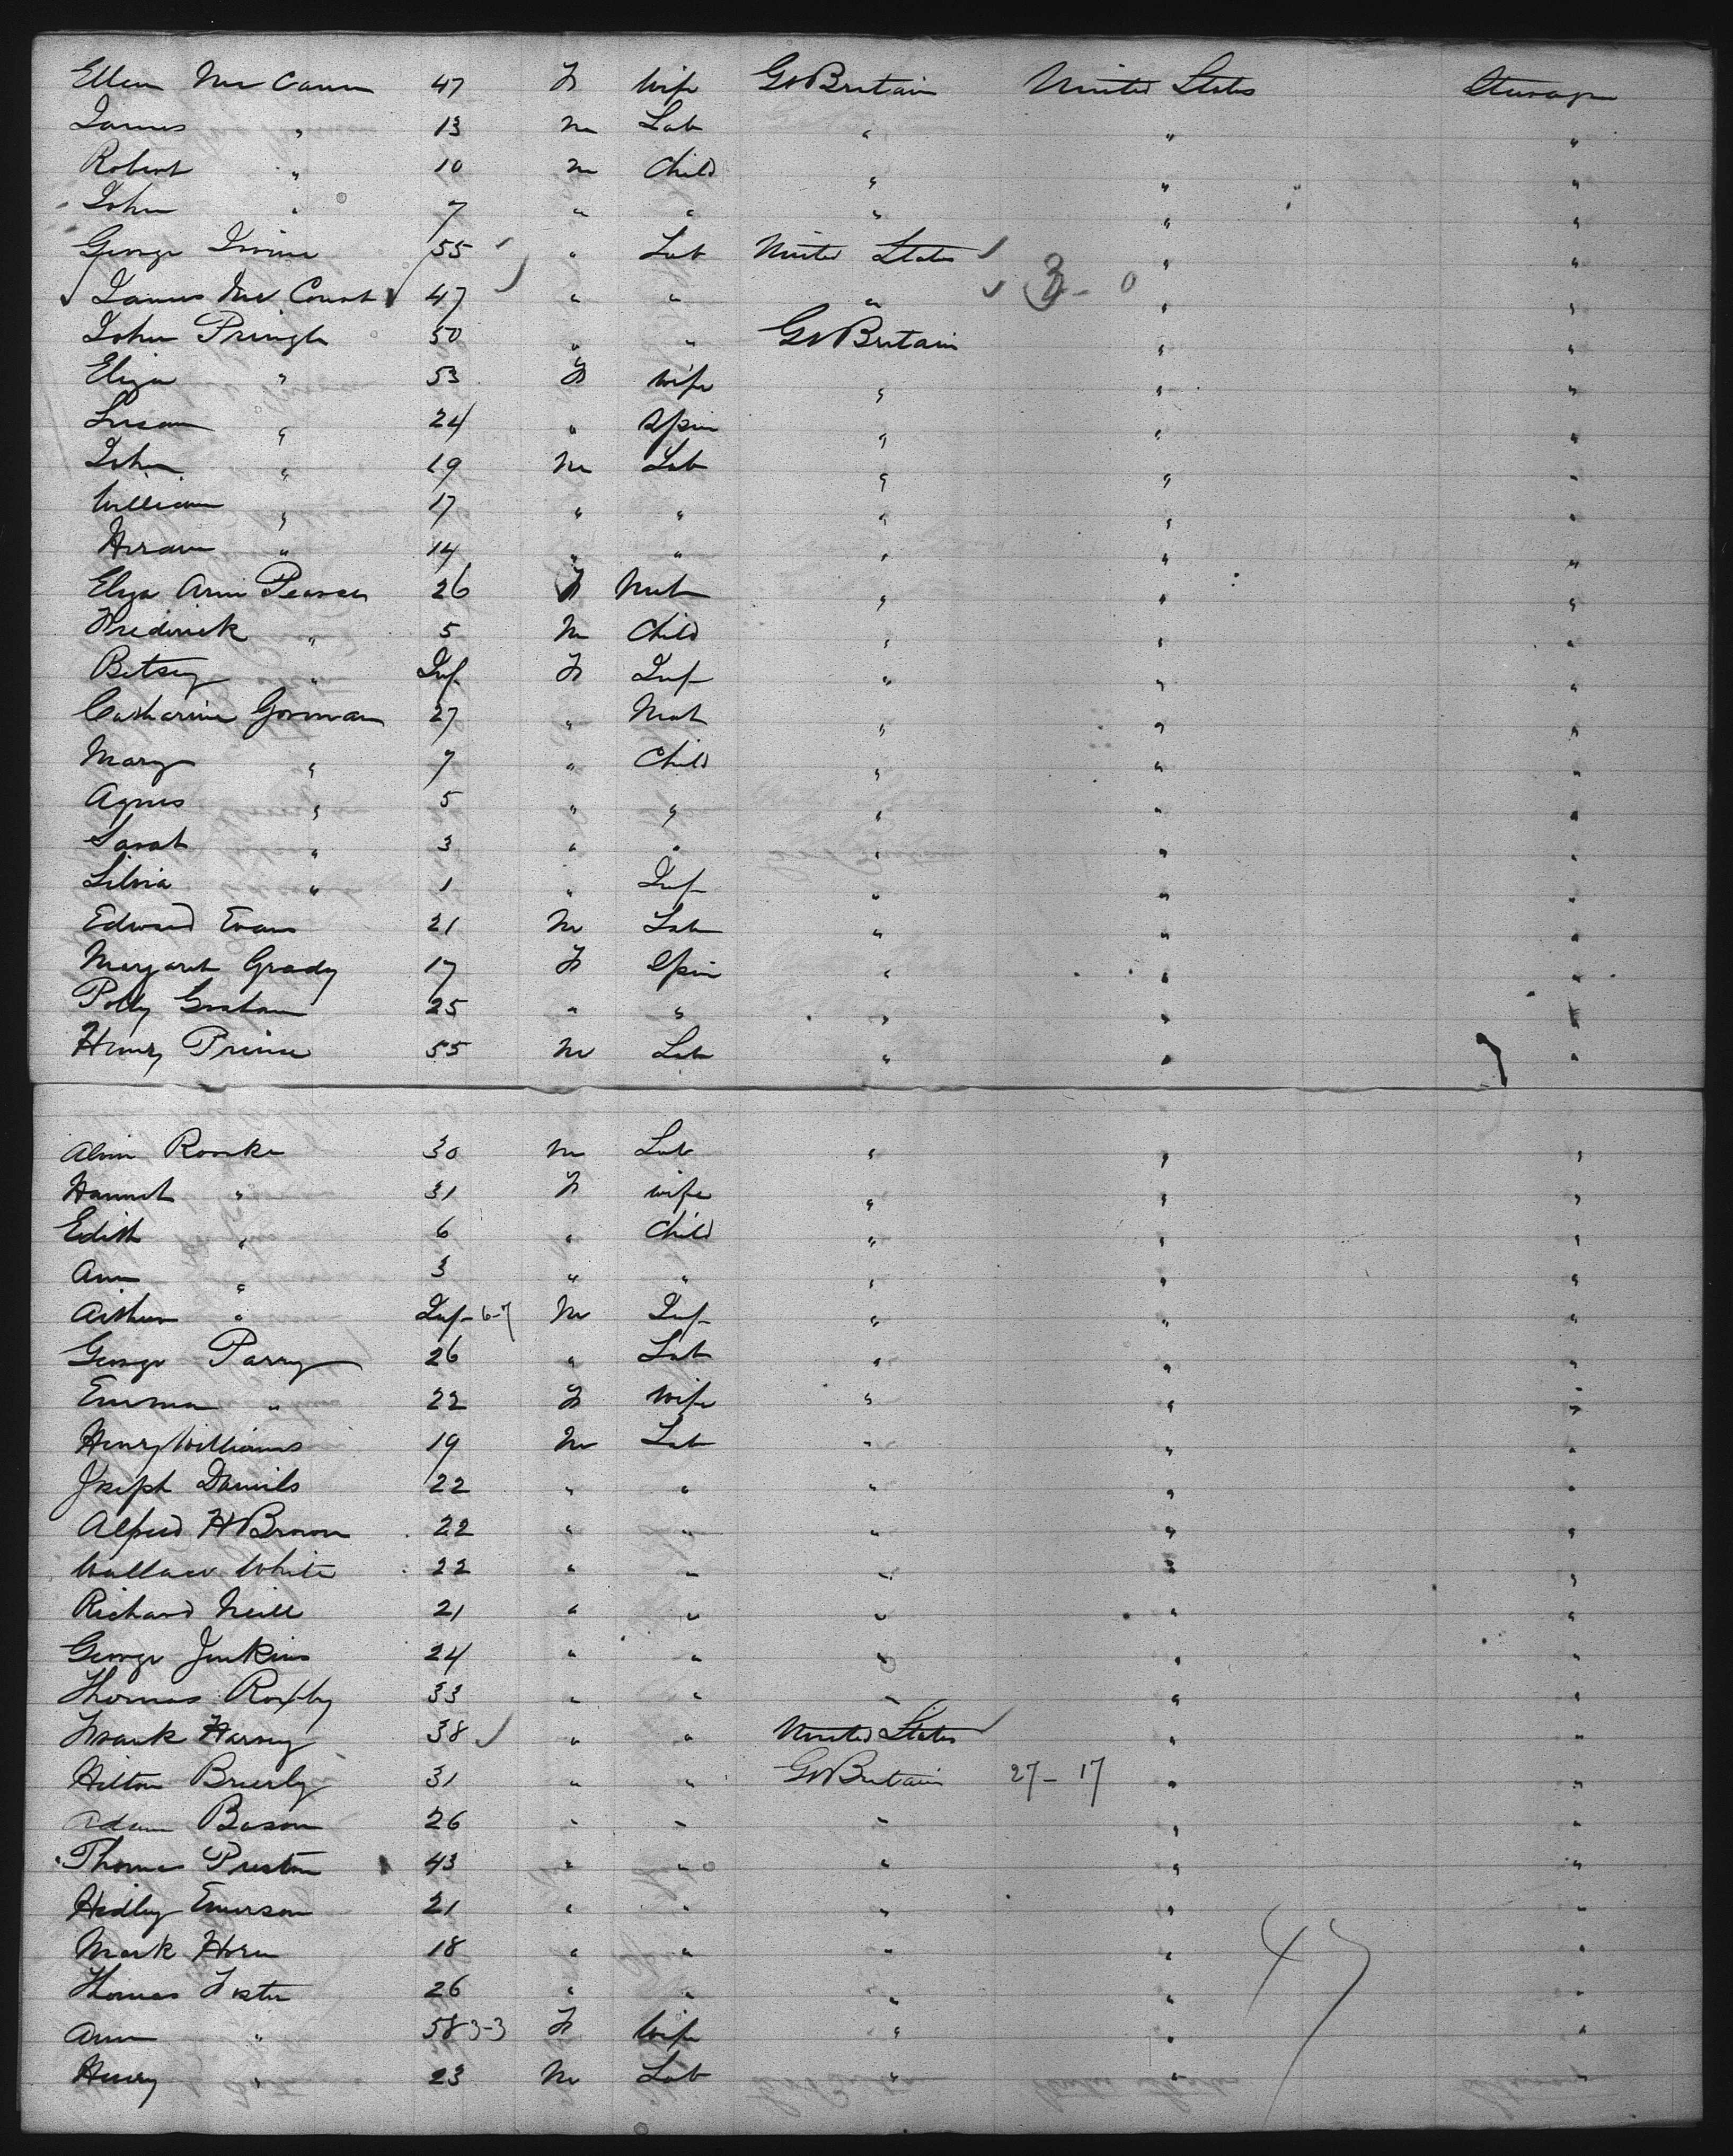 Ellen McCann 47 F Wife Gt Britain United States Steerage
James " 13 M Lab " " "
Robert " 10 M Child " " "
John " 7 " " " " "
George Irvine 55 " Lab United States " "
James McCourt 47 " " " 3-0 " "
John Pringle 50 " " Gt Britain " "
Eliza " 53 F Wife " " "
Susan " 24 " Spin " " "
John " 19 M Lab " " "
William " 17 " " " " "
Hiram " 14 " " " " "
Eliza Ann Pearson 26 F Mat " " "
Frederick " 5 M Child " " "
Betsey " Inf F Inf " " "
Catharine Gorman 27 " Mat " " "
Mary " 7 " Child " " "
Agnes " 5 " " " " "
Sarah " 3 " " " " "
Silvia " 1 " Inf " " "
Edward Evans 21 M Lab " " "
Margaret Grady 17 F Spin " " "
Polly Graham 25 " " " " "
Henry Prince 55 M Lab " " "
Rourke 30 M Lab " " "
Hannah " 31 F Wife " " "
Edith " 6 " Child " " "
Ann " 3 " " " " "
Arthur " Inf 6-7 M Inf " " "
George Parry 26 " Lab " " "
Emma " 22 F Wife " " "
Henry Williams 19 M Lab " " "
Joseph Daniels 22 " " " " "
Alfred H Brown 22 " " " " "
Wallace White 22 " " " " "
Richard Neill 21 " " " " "
George Jenkins 24 " " " " "
Thomas Roxby 33 " " " " "
Frank Harvey 38 " " United States " "
Hilton Brierly 31 " " Gt Britain 27-17 " "
Adam Bason 26 " " " " "
Thomas Preston 43 " " " " "
Hedley Emerson 21 " " " " "
Mark Horn 18 " " " " "
Thomas Foster 26 " " " " "
Ann " 58 3-3 F Wife " " "
Henry " 23 M Lab " " "
47